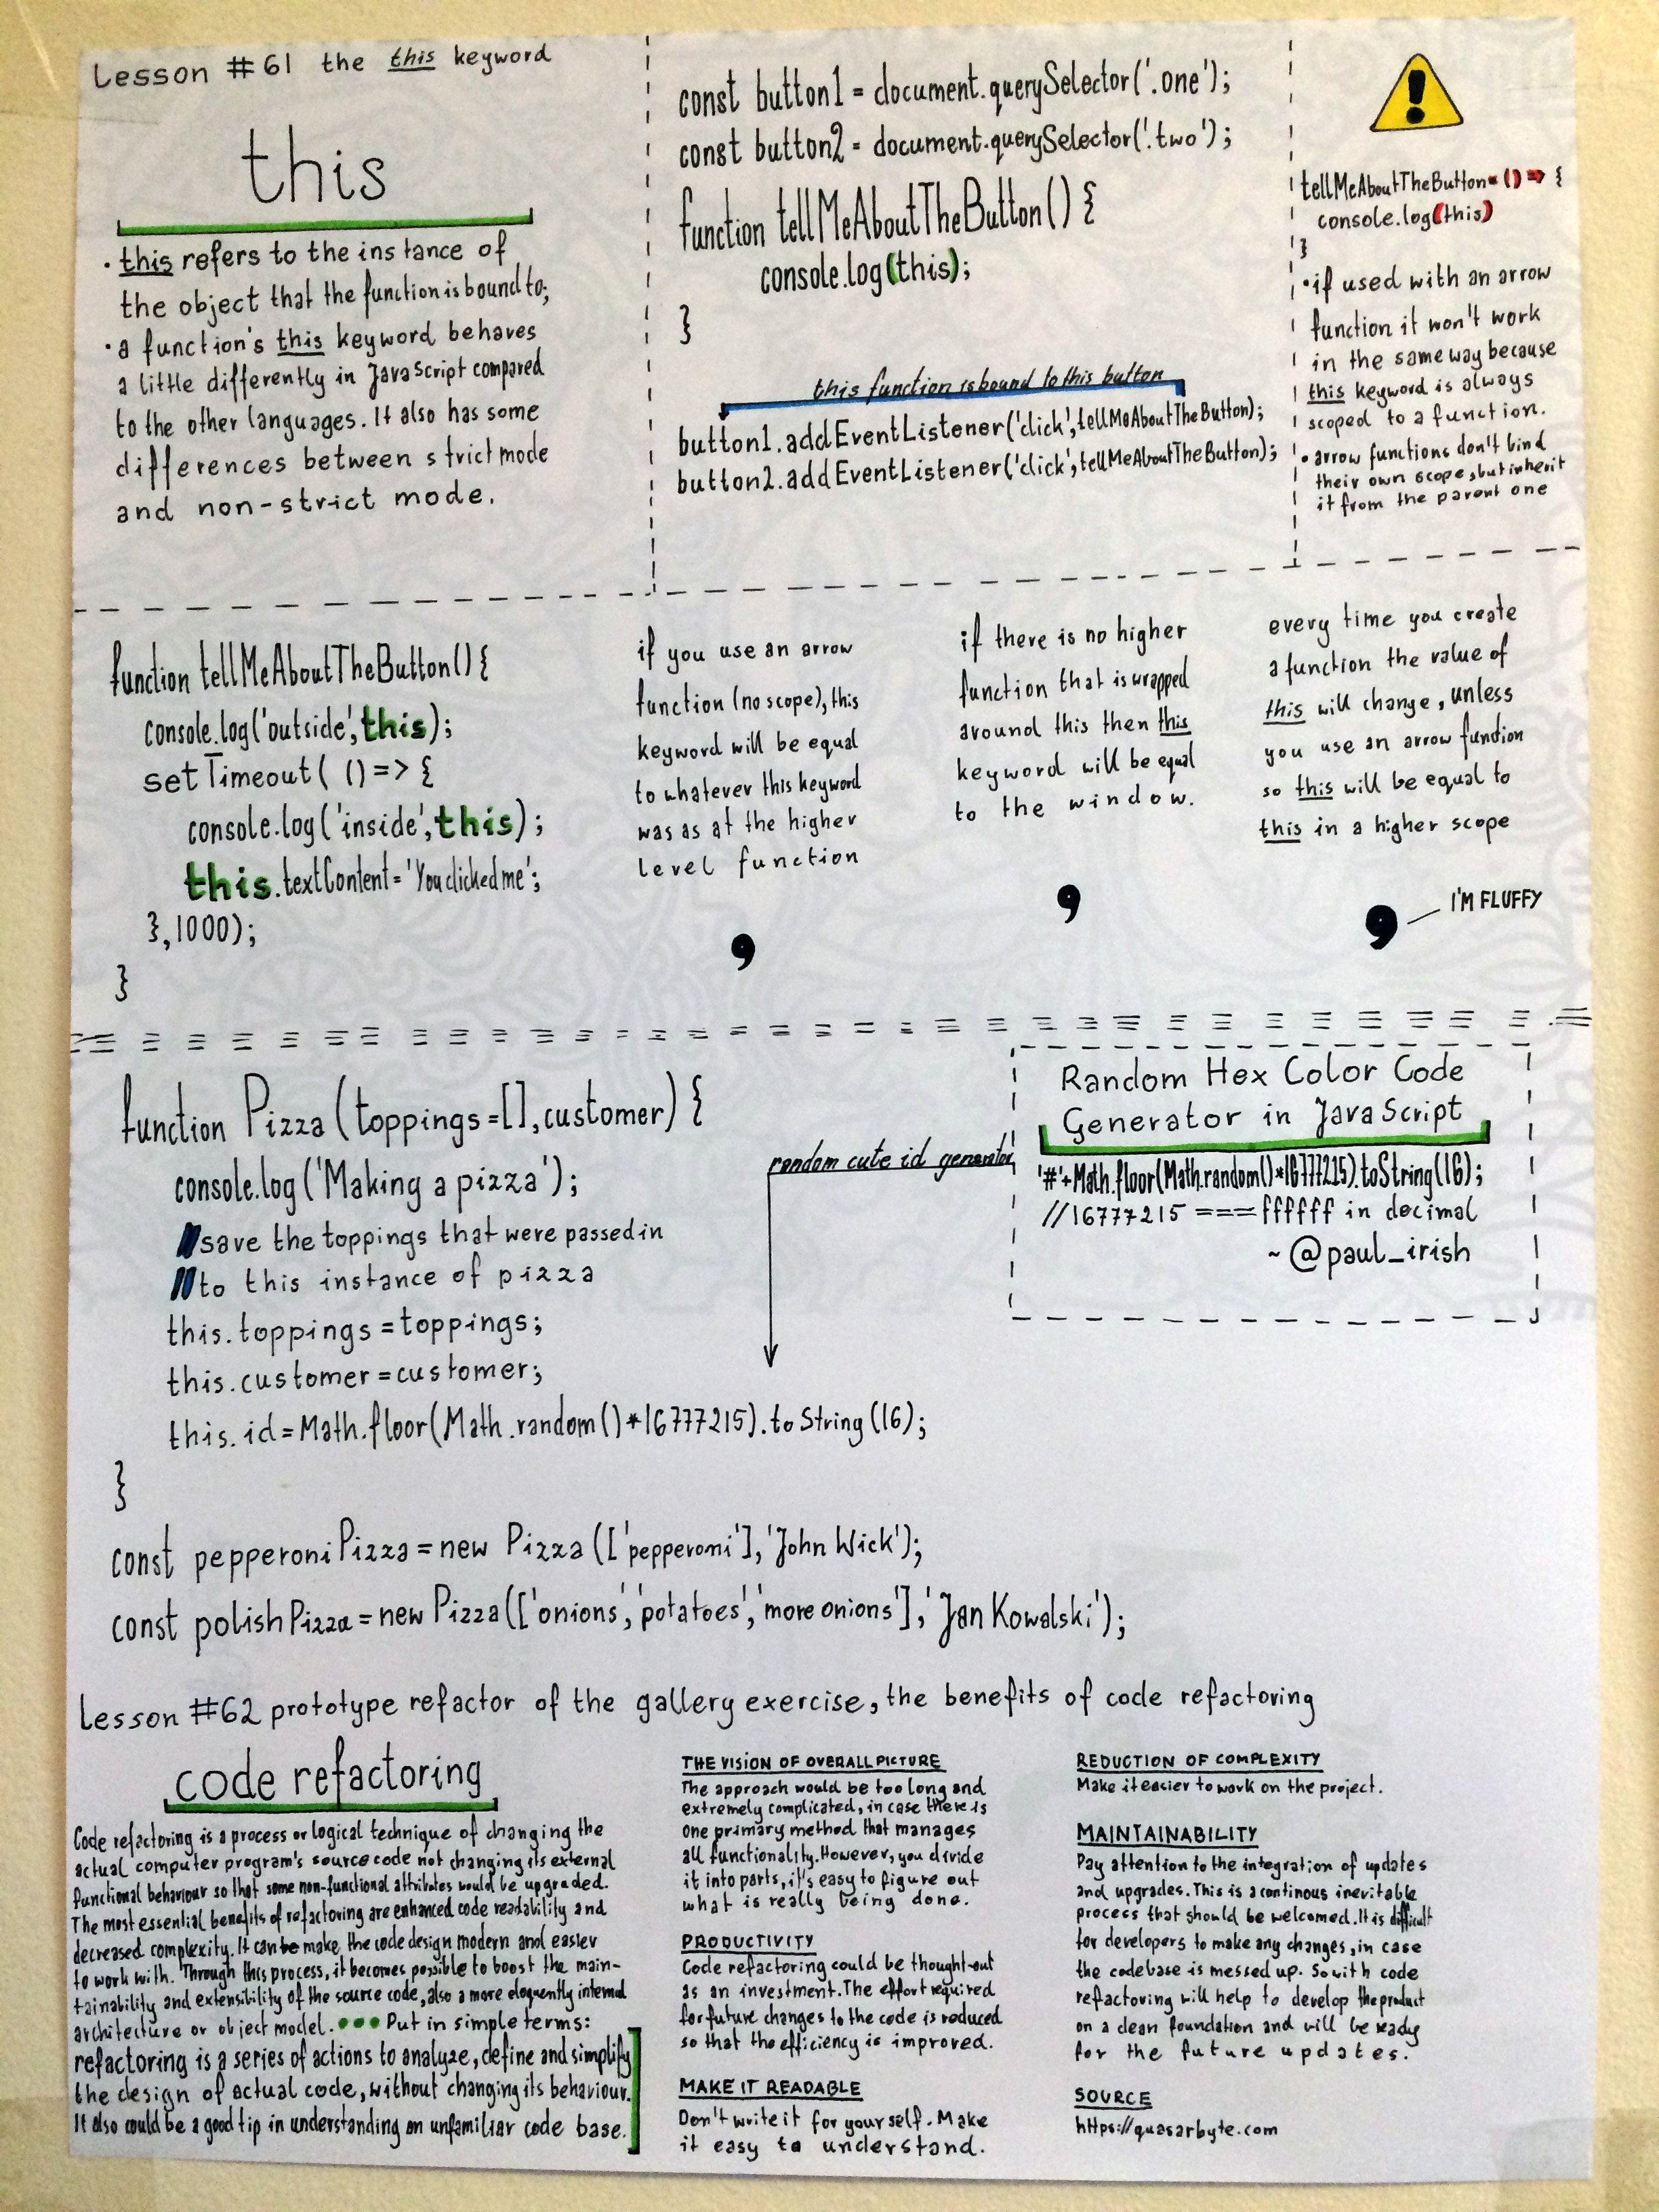 Lesson #61 the this keyword
this
• this refers to the instance of
the object that the function is bound to;
• a function's this keyword behaves
a little differently in JavaScript compared
to the other languages. It also has some
differences between strict mode
and non-strict mode.
const button1 = document.querySelector('.one');
const button2 = document.querySelector('.two');
function tellMeAboutTheButton() {
console.log(this);
}
this function is bound to this button
button1.addEventListener('click', tellMeAboutTheButton);
button2.addEventListener('click', tellMeAboutTheButton);
!
tellMeAboutTheButton= () => {
console.log(this)
}
• if used with an arrow
function it won't work
in the same way because
this keyword is always
scoped to a function.
• arrow functions don't bind
their own scope, but inherit
it from the parent one
function tellMeAboutTheButton() {
console.log('outside', this);
setTimeout( () => {
console.log('inside', this);
this.textContent = 'You clicked me';
}, 1000);
}
if you use an arrow
function (no scope), this
keyword will be equal
to whatever this keyword
was as at the higher
level function
,
if there is no higher
function that is wrapped
around this then this
keyword will be equal
to the window.
,
every time you create
a function the value of
this will change, unless
you use an arrow function
so this will be equal to
this in a higher scope
, I'M FLUFFY
function Pizza (toppings = [], customer) {
console.log('Making a pizza');
//save the toppings that were passed in
//to this instance of pizza
this.toppings = toppings;
this.customer = customer;
this.id = Math.floor(Math.random()*16777215).toString(16);
}
random cute id generator
Random Hex Color Code
Generator in JavaScript
'#'+Math.floor(Math.random()*16777215).toString(16);
//16777215 === ffffff in decimal
~ @paul_irish
const pepperoniPizza = new Pizza (['pepperoni'], 'John Wick');
const polishPizza = new Pizza(['onions', 'potatoes', 'more onions'], 'Jan Kowalski');
Lesson #62 prototype refactor of the gallery exercise, the benefits of code refactoring
code refactoring
Code refactoring is a process or logical technique of changing the
actual computer program's source code not changing its external
functional behaviour so that some non-functional attributes would be upgraded.
The most essential benefits of refactoring are enhanced code readability and
decreased complexity. It can be make the code design modern and easier
to work with. Through this process, it becomes possible to boost the main-
tainability and extensibility of the source code, also a more eloquently internal
architecture or object model. ••• Put in simple terms:
refactoring is a series of actions to analyze, define and simplify
the design of actual code, without changing its behaviour.
It also could be a good tip in understanding an unfamiliar code base.
THE VISION OF OVERALL PICTURE
The approach would be too long and
extremely complicated, in case there is
one primary method that manages
all functionality. However, you divide
it into parts, it's easy to figure out
what is really being done.
PRODUCTIVITY
Code refactoring could be thought-out
as an investment. The effort required
for future changes to the code is reduced
so that the efficiency is improved.
MAKE IT READABLE
Don't write it for yourself. Make
it easy to understand.
REDUCTION OF COMPLEXITY
Make it easier to work on the project.
MAINTAINABILITY
Pay attention to the integration of updates
and upgrades. This is a continous inevitable
process that should be welcomed. It is difficult
for developers to make any changes, in case
the codebase is messed up. So with code
refactoring will help to develop the product
on a clean foundation and will be ready
for the future updates.
SOURCE
https://quasarbyte.com